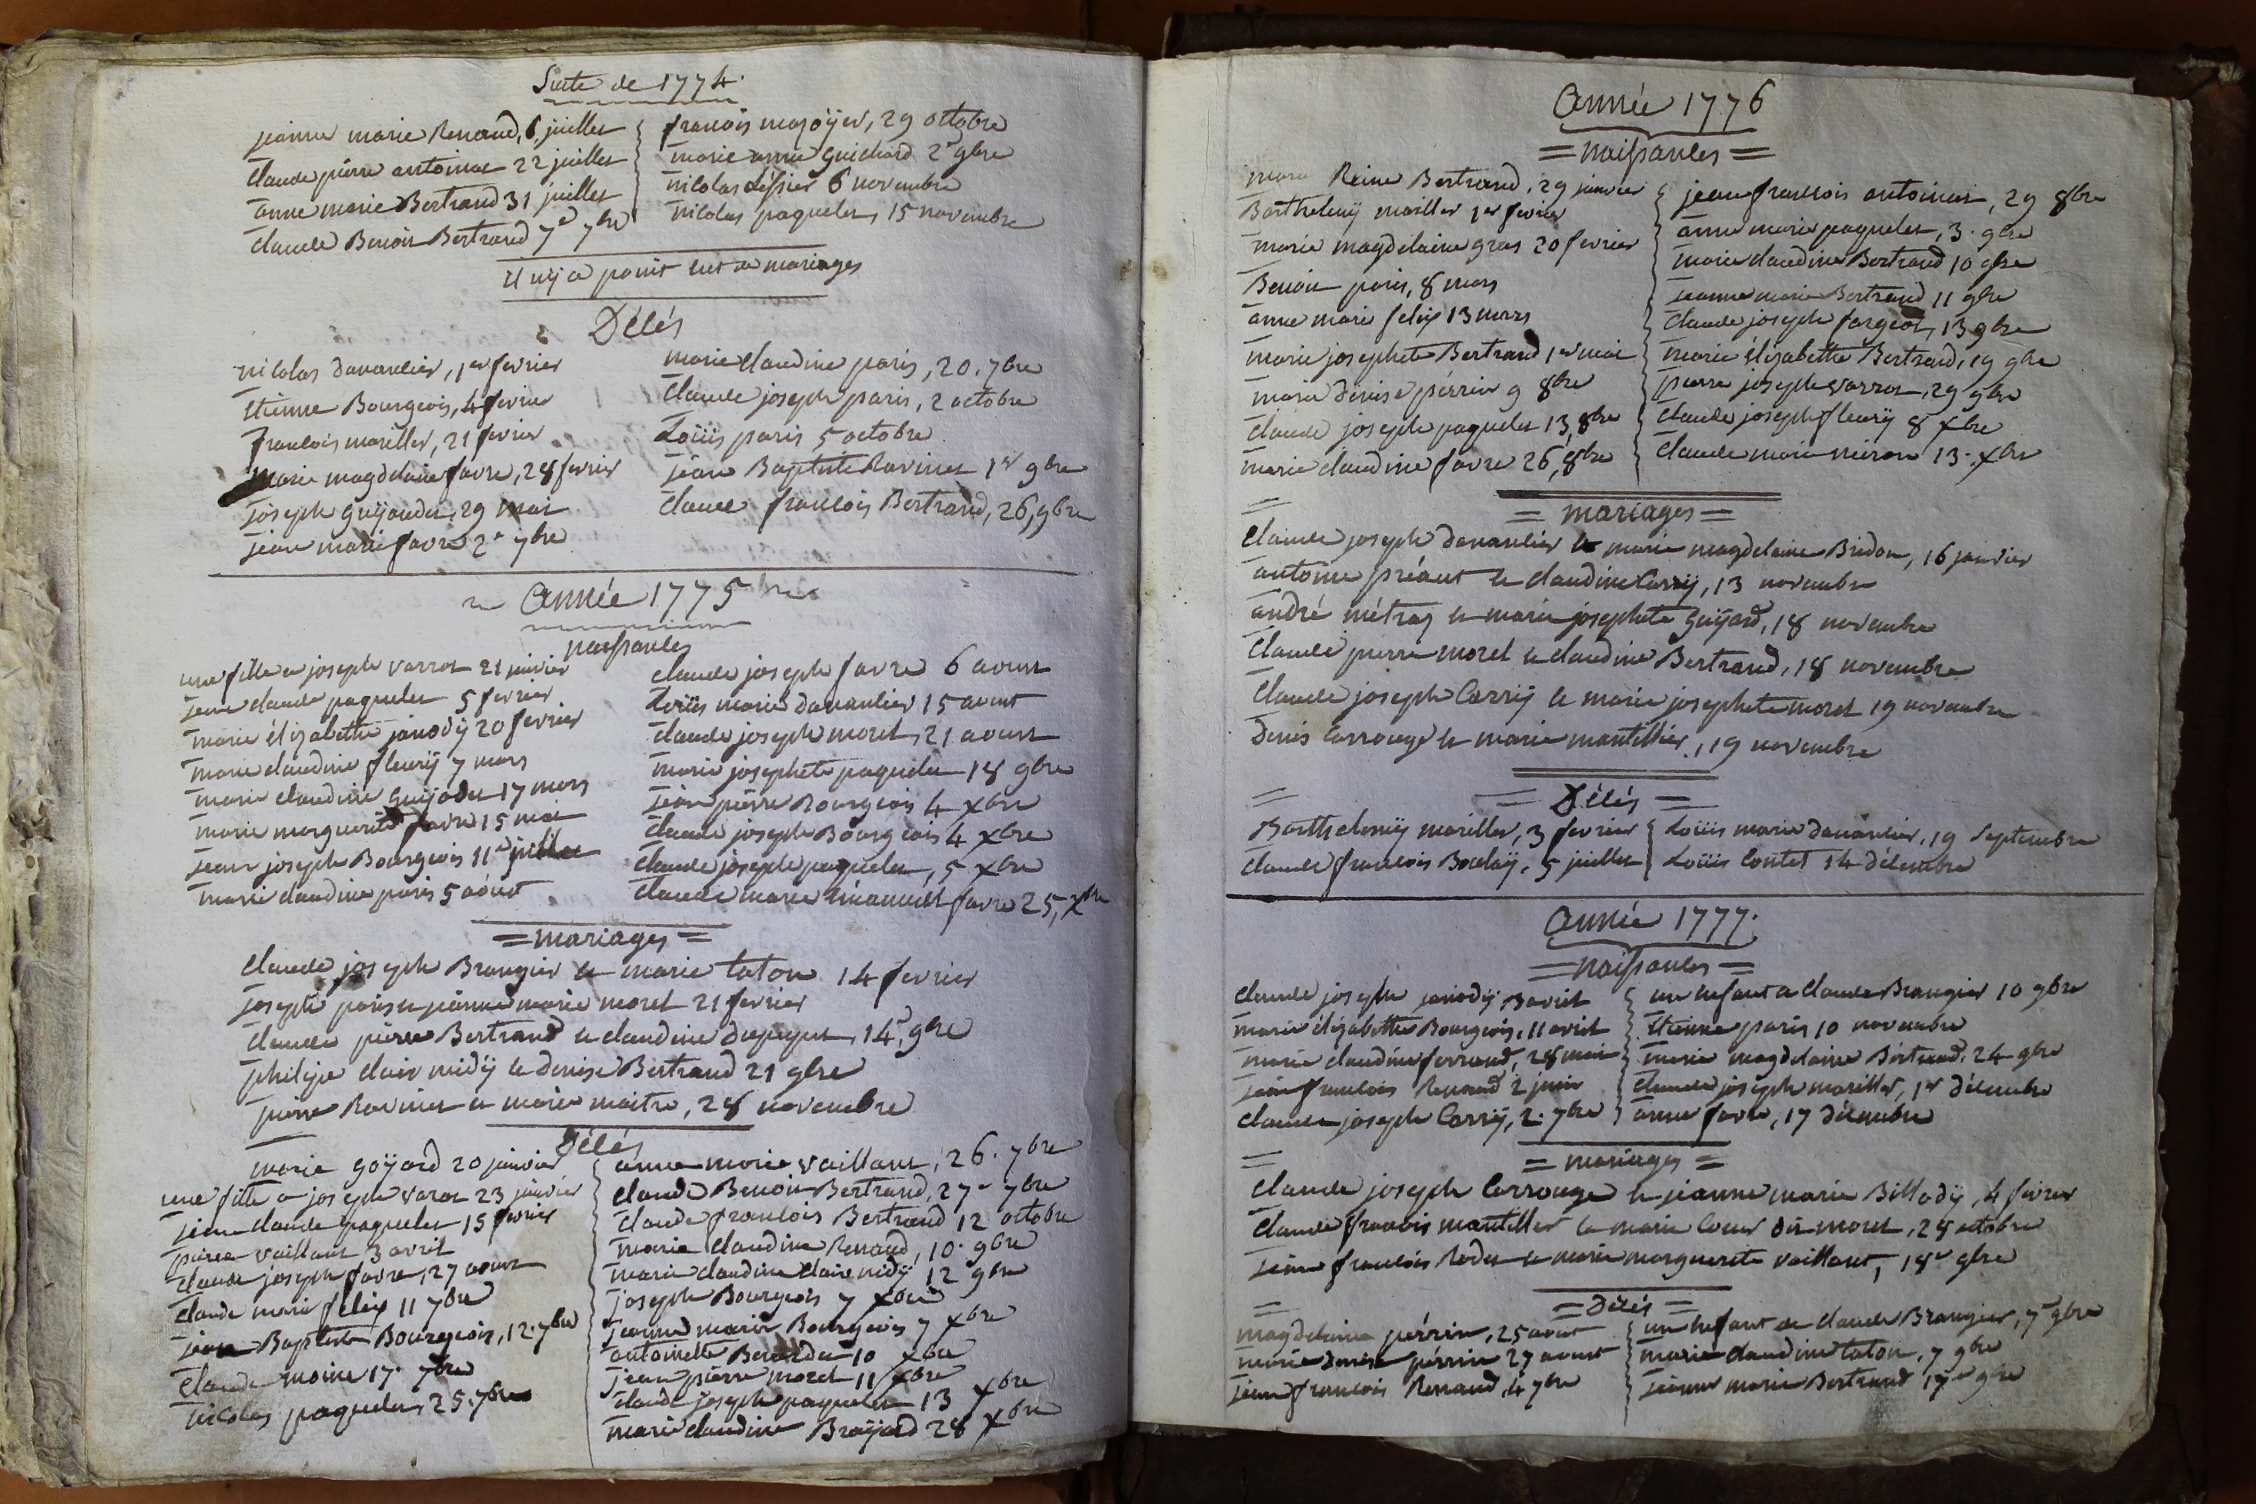 Suite de 1774.
jeanne marie Renaud, 6 juillet
claude pierre antoinat 22 juillet
anne marie Bertrand 31 juillet
claude Benoit Bertrand 7e 7bre
francois mojöÿer, 29 octobre
marie anne Guichard 2e 9bre
nicolas 6 novembre
nicolas paquelet, 15 novembre
il n'ÿ a point eut de mariages
Délés
nicolas davanlier, 1er fevrier
Etienne Bourgeois, 4 fevrier
francois mariller, 21 fevrier
Marie magdelaine favre, 28 fevrier
joseph Guÿaudet, 29 mai
jean marie favre 2e 7bre
marie claudine paris, 20. 7bre
claude joseph paris, 2 octobre
Loüis paris 5 octobre
jean Baptiste Ravinet 1er 9bre
claude francois Bertrand, 26, 9bre
Année 1775
naissances
une fille a joseph varrot 21 janvier
jean claude paquelet 5 fevrier
marie élizabethe janodÿ 20 fevrier
marie claudine fleurÿ 7 mars
marie claudine Guÿodet 17 mars
marie marguerite favre 15 mai
jean joseph Bourgeois 11e juillet
marie claudine paris 5 aóust
claude joseph favre 6 aoust
Loüis marie davanlier 15 aoust
claude joseph moret, 21 aoust
marie josephete paquelet 18 9bre
jean pierre Bourgeois 4 xbre
claude joseph Bourgeois 4 xbre
claude joseph paquelet, 5 xbre
claude marie émanuël favre 25, xbre
= mariages =
claude joseph Brangier et marie taton 14 fevrier
joseph paris et jeanne marie moret 21 fevrier
claude pierre Bertrand et claudine 14, 9bre
philipe clair midÿ et denise Bertrand 21 9bre
pierre Ravinet et marie maitre, 28 novembre
Délés
marie goÿard 20 janvier
une fille a joseph varot 23 janvier
jean claude paquelet 15 fevrier
pierre vaillant 3 avril
claude joseph favre, 27 aoust
claude marie felix 11 7bre
jean Baptiste Bourgeois, 12. 7bre
claude moine 17. 7bre
nicolas paquelet, 25. 7bre
anne marie vaillant, 26. 7bre
claude Benoit Bertrand, 27e 7bre
claude francois Bertrand 12 octobre
marie claudine Renaud, 10. 9bre
marie claudine clair midÿ 12 9bre
joseph Bourgeois 7 xbre
jeanne marie Bourgeois 7 xbre
antoinette 10 xbre
jean pierre moret 11 xbre
claude joseph paquelet 13 xbre
marie claudine Braÿard 28 xbre
Année 1776
= naissances =
marie Reine Bertrand, 29 janvier
Barthelemÿ mariller 1er fevrier
marie magdelaine gras 20 fevrier
Benoit paris, 8 mars
anne marie felix 13 mars
marie josephete Bertrand 1er mai
marie denise pérrin 9 8bre
claude joseph paquelet 13, 8bre
marie claudine favre 26, 8bre
jean francois antoinat, 29 8bre
anne marie paquelet, 3. 9bre
marie claudine Bertrand 10 9bre
jeanne marie Bertrand 11 9bre
claude joseph fargeot, 13 9bre
marie élizabethe Bertrand, 19 9bre
pierre joseph varrot, 29 9bre
claude joseph fleurÿ 8 xbre
claude marie 13. xbre
= mariages =
claude joseph davanlier et marie magdelaine Bridon, 16 janvier
antoine préaut et claudine Carrÿ, 13 novembre
andré métraz et marie josephete Guÿard, 18 novembre
claude pierre moret et claudine Bertrand, 18 novembre
claude joseph Carrÿ et marie josephete moret 19 novembre
denis Carrouge et marie mantellier, 19 novembre
= Délés =
Barthelemÿ mariller, 3 fevrier
claude francois Boulaÿ, 5 juillet
Loüis marie davanlier, 19 septembre
Loüis Contet 14 décembre
Année 1777.
= naissances =
claude joseph janodÿ, 3 avril
marie élizabethe Bourgeois, 11 avril
marie claudine ferrand, 28 mai
jean francois Renaud 2 juin
claude joseph Carrÿ, 2. 7bre
un enfant a claude Brangier 10 9bre
Etienne paris 10 novembre
marie magdelaine Bertrand, 24 9bre
claude joseph mariller, 1er décembre
anne favre, 17 décembre
= mariages =
claude joseph Carrouge et jeanne marie Billodÿ, 4 fevrier
claude francois mantellier et marie Coeur dit moret, 28 octobre
jean francois Rodet et marie marguerite vaillant, 18e 9bre
= Délés =
magdelaine pérrin, 25 aoust
marie denise pérrin 27 aoust
jean francois Renaud, 4 7bre
un enfant de claude Brangier, 7e 9bre
marie claudine taton, 7 9bre
jeanne marie Bertrand 17e 9bre